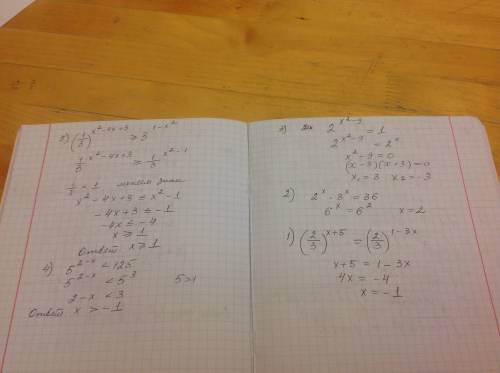 5) (1/3)^(x²-4x+3) ≥ 3^(1-x²)
1/3^(x²-4x+3) ≥ 1/3^(x²-1)
1/3 < 1 меняем знак
x² - 4x + 3 ≤ x² - 1
-4x + 3 ≤ -1
-4x ≤ -4
x ≥ 1
Ответ: x ≥ 1
4) 5^(2-x) < 125
5^(2-x) < 5³ 5>1
2-x < 3
Ответ x > -1
3) 2^(x²-9) = 1
2^(x²-9) = 2°
x² - 9 = 0
(x-3)(x+3)=0
x₁ = 3 x₂ = -3
2) 2^x · 3^x = 36
6^x = 6² x = 2
1) (2/3)^(x+5) = (2/3)^(1-3x)
x+5 = 1-3x
4x = -4
x = -1